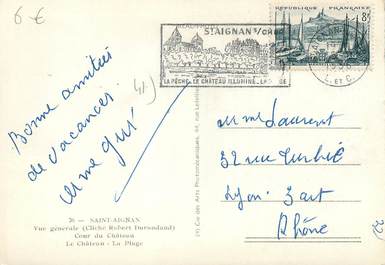 6 €
ST AIGNAN S/CHER
LA PÊCHE. LE CHATEAU ILLUMINÉ.
L. ET C.
RÉPUBLIQUE FRANÇAISE
8F
Bonne amitiés
de vacances.
Mme Gui
Mme Laurent
32 rue Turbil
Lyon. 3art
Rhône
26 - SAINT-AIGNAN
Vue générale (Cliché Robert Durandaud)
Cour du Château
Le Château - La Plage